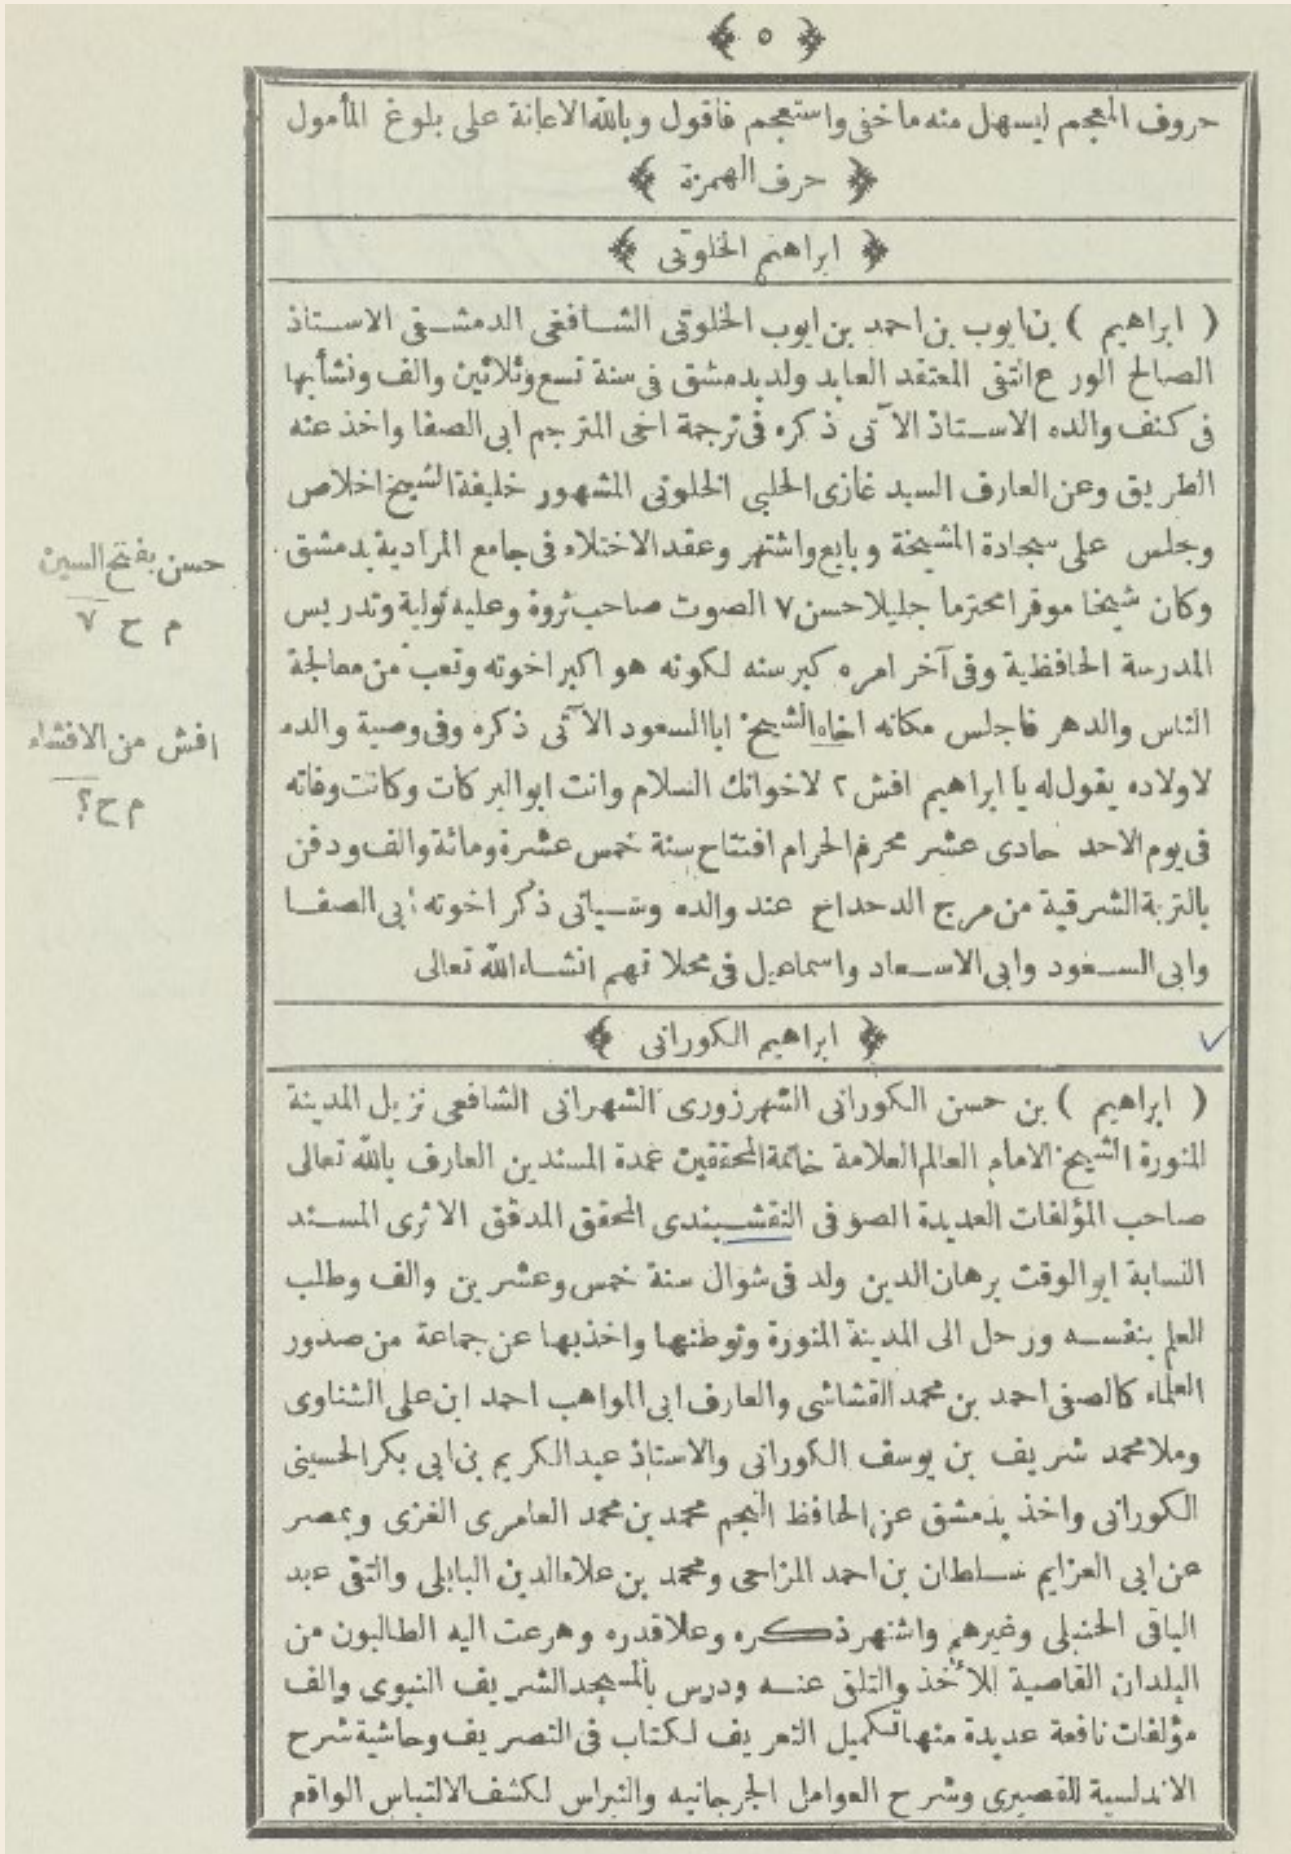 ﴿ ٥ ﴾
حروف المعجم ليسهل منه ما خفى واستعجم فاقول وبالله الاعانة على بلوغ المأمول
﴿ حرف الهمزة ﴾
﴿ ابراهيم الخلوتى ﴾
( ابراهيم ) بن ايوب بن احمد بن ايوب الخلوتى الشافعى الدمشقى الاستاذ
الصالح الورع التقى المعتقد العابد ولد بدمشق فى سنة تسع وثلاثين والف ونشأ بها
فى كنف والده الاستاذ الآتى ذكره فى ترجمة اخى المترجم ابى الصفا واخذ عنه
الطريق وعن العارف السيد غازى الحلبى الخلوتى المشهور خليفة الشيخ اخلاص
وجلس على سجادة المشيخة وبايع واشتهر وعقد الاختلاء فى جامع المرادية بدمشق
وكان شيخا موقرا محترما جليلا حسن ٧ الصوت صاحب ثروة وعليه تولية وتدريس
المدرسة الحافظية وفى آخر امره كبر سنه لكونه هو اكبر اخوته وتعب من معالجة
الناس والدهر فاجلس مكانه اخاه الشيخ ابا السعود الآتى ذكره وفى وصية والده
لاولاده يقول له يا ابراهيم افش ٢ لاخوانك السلام وانت ابو البركات وكانت وفاته
فى يوم الاحد حادى عشر محرم الحرام افتتاح سنة خمس عشرة ومائة والف ودفن
بالتربة الشرقية من مرج الدحداح عند والده وسيأتى ذكر اخوته ابى الصفا
وابى السعود وابى الاسعاد واسماعيل فى محلاتهم انشاء الله تعالى
حسن بفتح السين
م ح ٧
افش من الافشاء
م ح ؟
﴿ ابراهيم الكورانى ﴾
( ابراهيم ) بن حسن الكورانى الشهرزورى الشهرانى الشافعى نزيل المدينة
المنورة الشيخ الامام العالم العلامة خاتمة المحققين عمدة المسندين العارف بالله تعالى
صاحب المؤلفات العديدة الصوفى النقشبندى المحقق المدقق الاثرى المسند
النسابة ابو الوقت برهان الدين ولد فى شوال سنة خمس وعشرين والف وطلب
العلم بنفسه ورحل الى المدينة المنورة وتوطنها واخذ بها عن جماعة من صدور
العلماء كالصفى احمد بن محمد القشاشى والعارف ابى المواهب احمد ابن على الشناوى
وملا محمد شريف بن يوسف الكورانى والاستاذ عبد الكريم بن ابى بكر الحسينى
الكورانى واخذ بدمشق عن الحافظ النجم محمد بن محمد العامرى الغزى وبمصر
عن ابى العزايم سلطان بن احمد المزاحى ومحمد بن علاء الدين البابلى والتقى عبد
الباقى الحنبلى وغيرهم واشتهر ذكره وعلا قدره وهرعت اليه الطالبون من
البلدان القاصية للأخذ والتلقى عنه ودرس بالمسجد الشريف النبوى والف
مؤلفات نافعة عديدة منها تكميل التعريف لكتاب فى التصريف وحاشية شرح
الاندلسية للقصيرى وشرح العوامل الجرجانيه والنبراس لكشف الالتباس الواقع